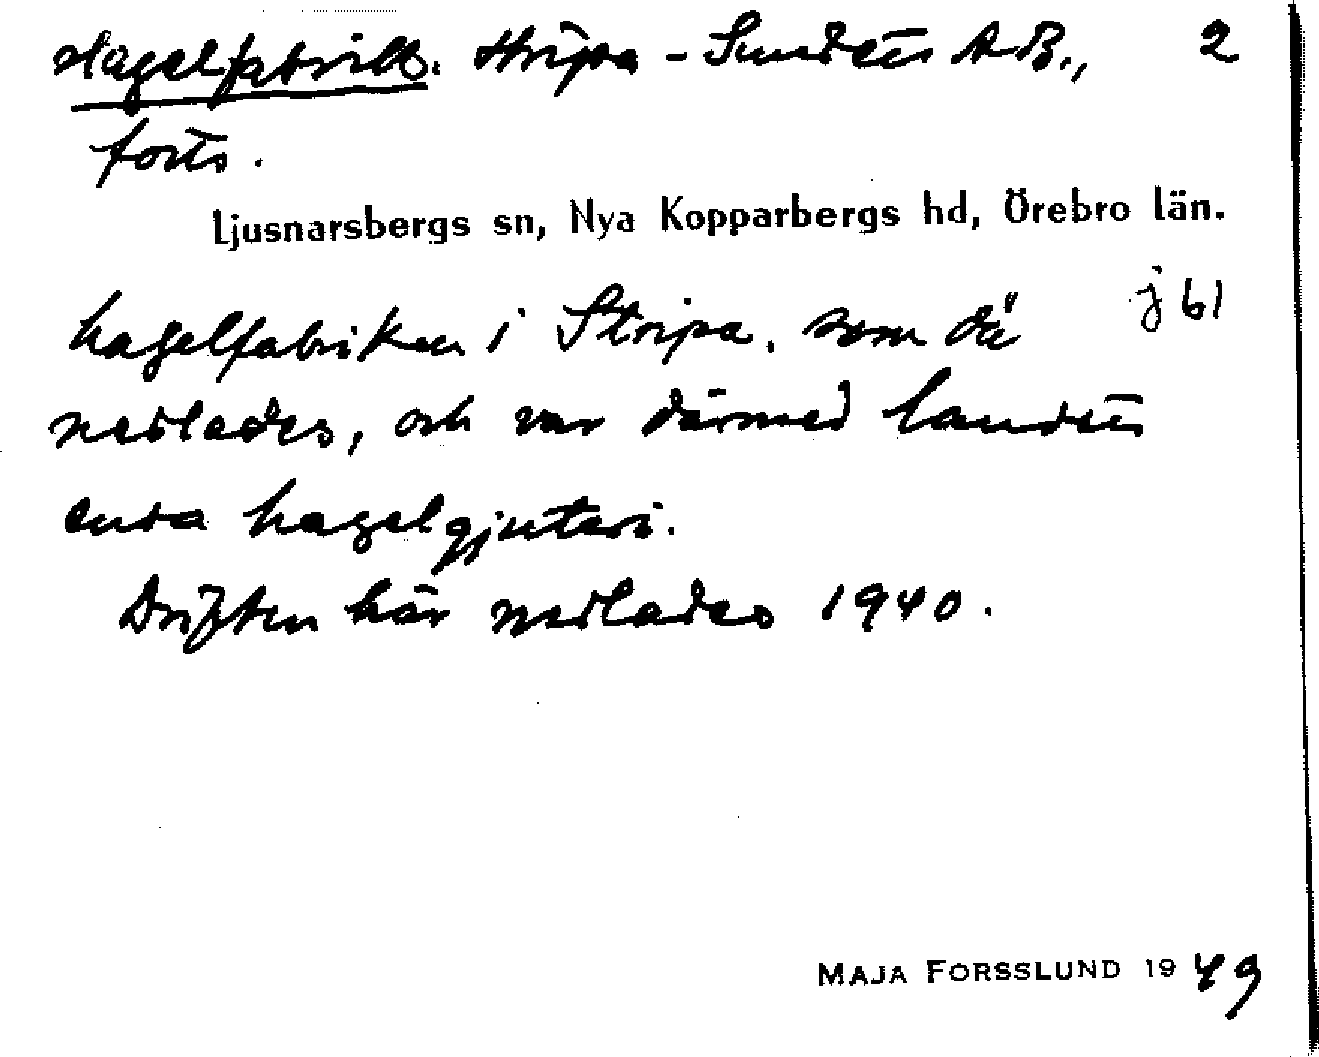 Hagelfabrik. Stripa - Sundets A.B., 2
forts.
Ljusnarsbergs sn, Nya Kopparbergs hd, Örebro län.
j 61
hagelfabriken i Stripa, som då
nedlades, och var därmed landets
enda hagelgjuteri.
Driften här nedlades 1940.
MAJA FORSSLUND 1949